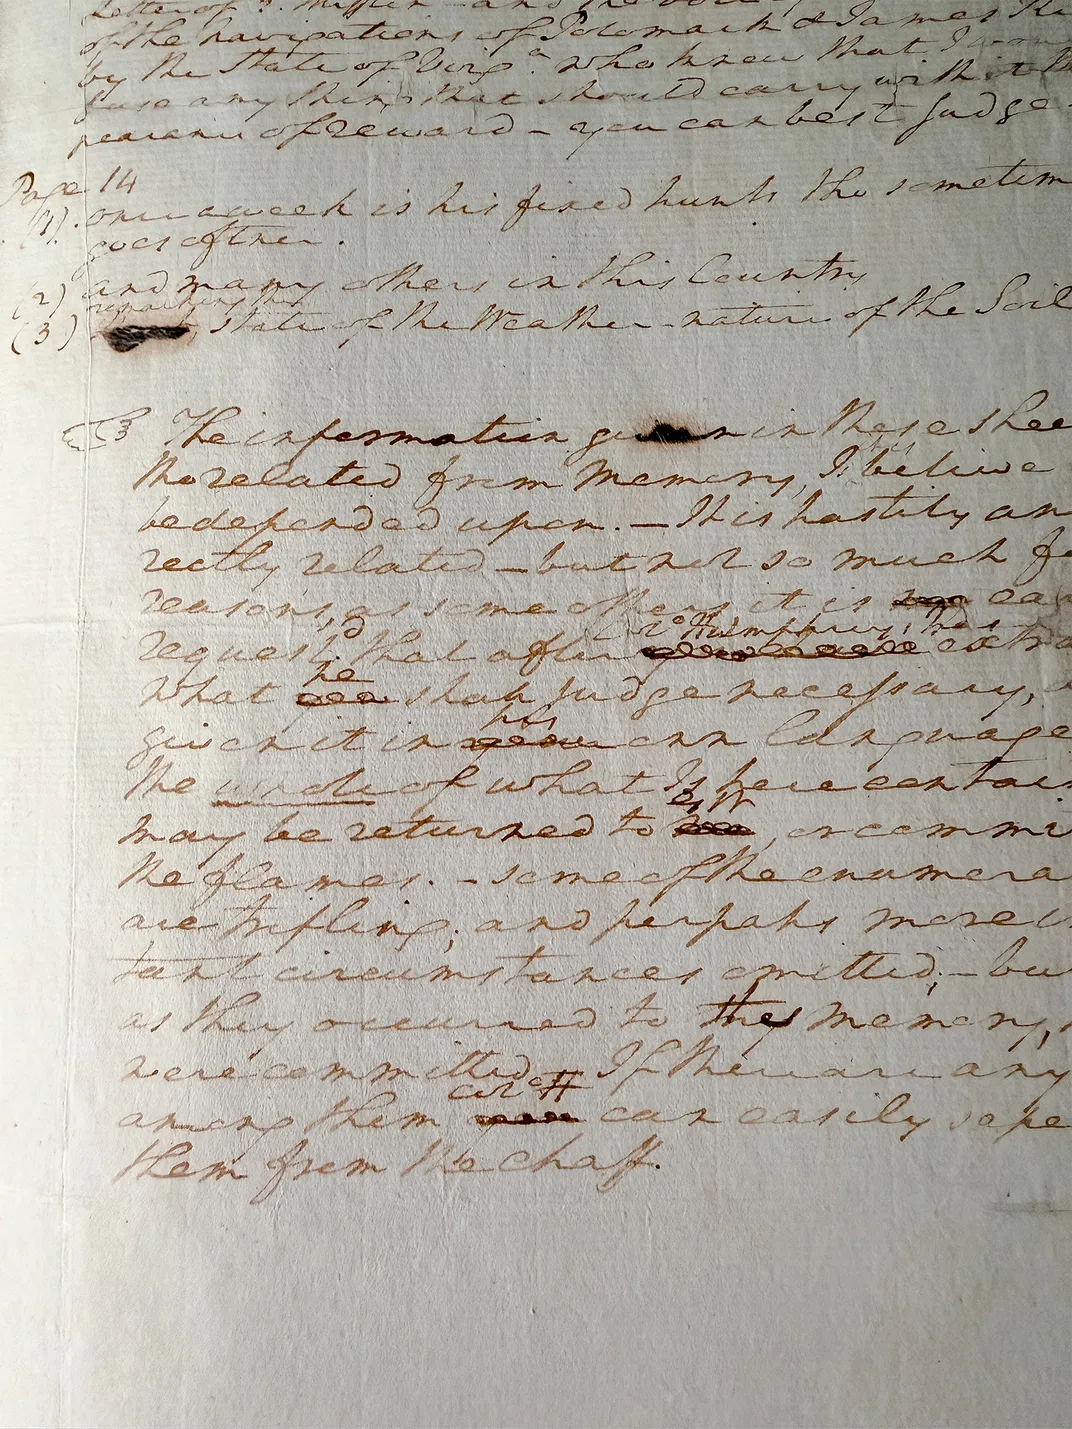 letter of P. Mifflin - and the
of the navigations of Potomack & James Ri
by the State of Virg.a who knew that I
fuse any thing that should carry with it the
pearance of reward - you can best judge
Page 14
(1). once a week is his fixed hunts tho sometim
goes oftner.
(2) and many others in this Country
remarking the
(3) state of the Weather - nature of the Soil
The information given in these shee
tho related from Memory, It is I believe
be depended upon. - It is hastily an
rectly related - but not so much fo
reasons, as some others, it is ea
Colo. Humphreys has
request.d that after extra
he
what you shall judge necessary,
his
given it in your own language
the whole of what Is here contai
G.W
may be returned to , or commi
the flames. - some of the enumera
are trifling; and perhaps more i
tant circumstances omitted; - bu
as they occurred to the memory,
were committed - If there are any
Colo. H
among them you can easily sepe
them from the chaff.